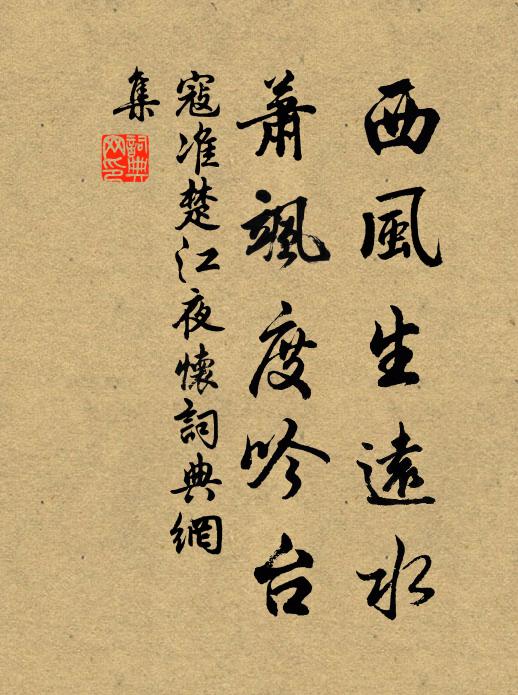 西風生遠水
蕭颯度吟台
寇准楚江夜懷詞典網
集
詞典
网印